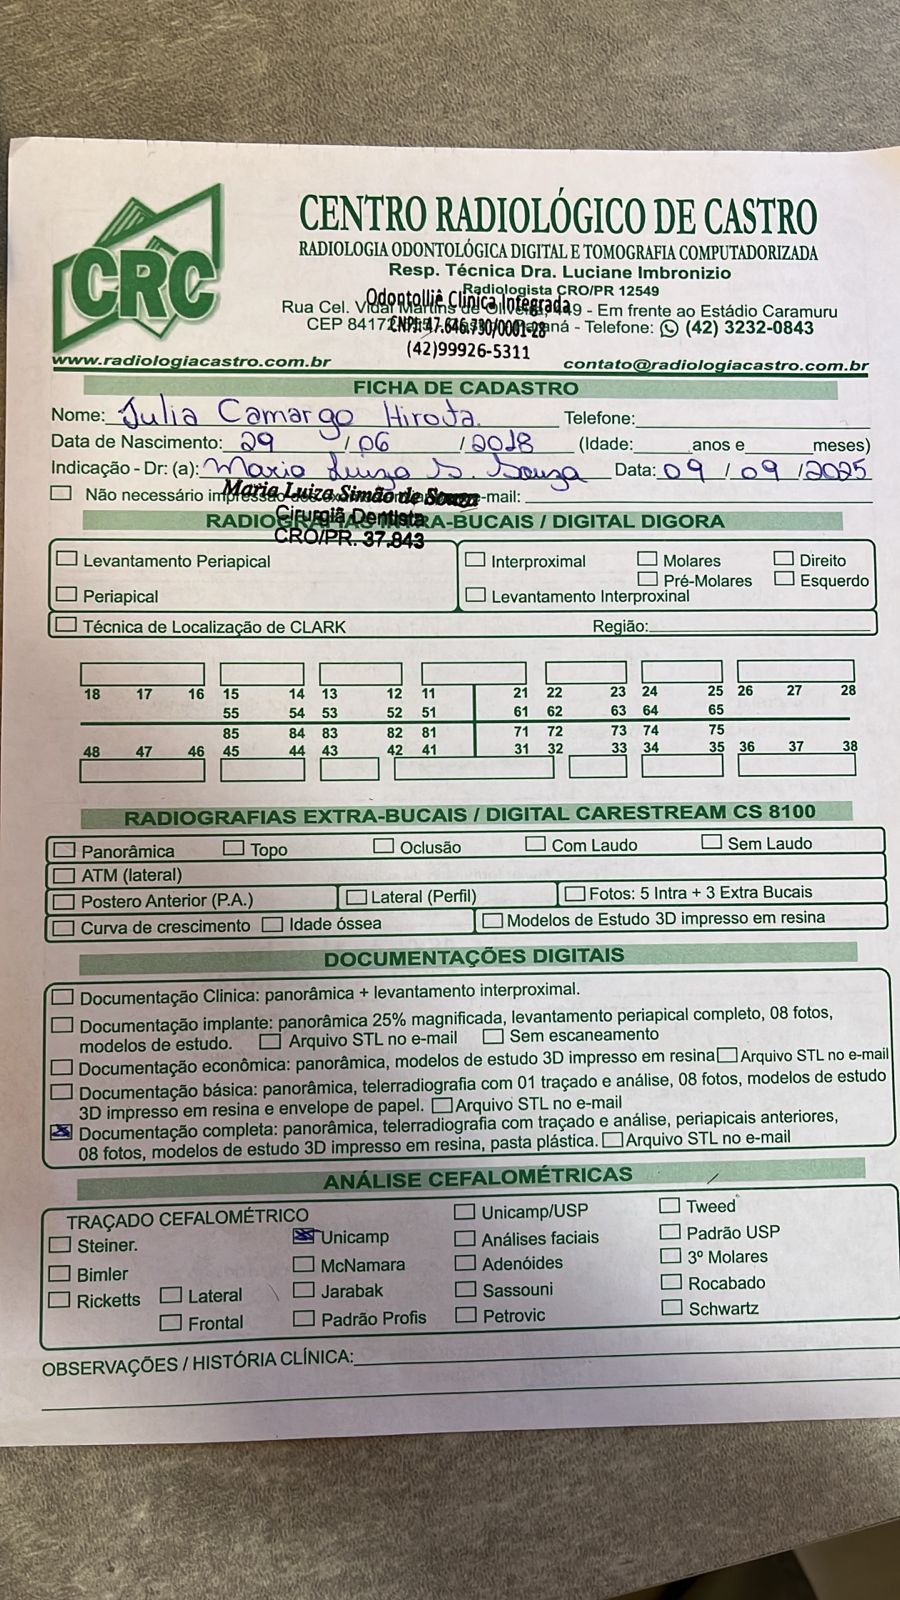 CRC
CENTRO RADIOLÓGICO DE CASTRO
RADIOLOGIA ODONTOLÓGICA DIGITAL E TOMOGRAFIA COMPUTADORIZADA
Resp. Técnica Dra. Luciane Imbronizio
Radiologista CRO/PR 12549
Odontolliê Clínica Integrada
Rua Cel. Vidal Martins de Oliveira, 449 - Em frente ao Estádio Caramuru
CEP 84172 - Telefone: (42) 3232-0843
CNPJ: 47.646.730/0001-28
(42)99926-5311
www.radiologiacastro.com.br contato@radiologiacastro.com.br
FICHA DE CADASTRO
Nome: Julia Camargo Hirota. Telefone:
Data de Nascimento: 29 / 06 / 2018 (Idade: anos e meses)
Indicação - Dr: (a): Maria Luiza S. Souza Data: 09 / 09 / 2025
Não necessário e-mail:
Maria Luiza Simão de Souza
Cirurgiã Dentista
CRO/PR. 37.843
RADIOGRAFIAS INTRA-BUCAIS / DIGITAL DIGORA
Levantamento Periapical Interproximal Molares Direito
Pré-Molares Esquerdo
Periapical Levantamento Interproxinal
Técnica de Localização de CLARK Região:
18 17 16 15 14 13 12 11 21 22 23 24 25 26 27 28
55 54 53 52 51 61 62 63 64 65
85 84 83 82 81 71 72 73 74 75
48 47 46 45 44 43 42 41 31 32 33 34 35 36 37 38
RADIOGRAFIAS EXTRA-BUCAIS / DIGITAL CARESTREAM CS 8100
Panorâmica Topo Oclusão Com Laudo Sem Laudo
ATM (lateral)
Postero Anterior (P.A.) Lateral (Perfil) Fotos: 5 Intra + 3 Extra Bucais
Curva de crescimento Idade óssea Modelos de Estudo 3D impresso em resina
DOCUMENTAÇÕES DIGITAIS
Documentação Clinica: panorâmica + levantamento interproximal.
Documentação implante: panorâmica 25% magnificada, levantamento periapical completo, 08 fotos,
modelos de estudo. Arquivo STL no e-mail Sem escaneamento
Documentação econômica: panorâmica, modelos de estudo 3D impresso em resina Arquivo STL no e-mail
Documentação básica: panorâmica, telerradiografia com 01 traçado e análise, 08 fotos, modelos de estudo
3D impresso em resina e envelope de papel. Arquivo STL no e-mail
Documentação completa: panorâmica, telerradiografia com traçado e análise, periapicais anteriores,
08 fotos, modelos de estudo 3D impresso em resina, pasta plástica. Arquivo STL no e-mail
ANÁLISE CEFALOMÉTRICAS
TRAÇADO CEFALOMÉTRICO Unicamp/USP Tweed
Steiner. Unicamp Análises faciais Padrão USP
Bimler McNamara Adenóides 3º Molares
Ricketts Lateral Jarabak Sassouni Rocabado
Frontal Padrão Profis Petrovic Schwartz
OBSERVAÇÕES / HISTÓRIA CLÍNICA: